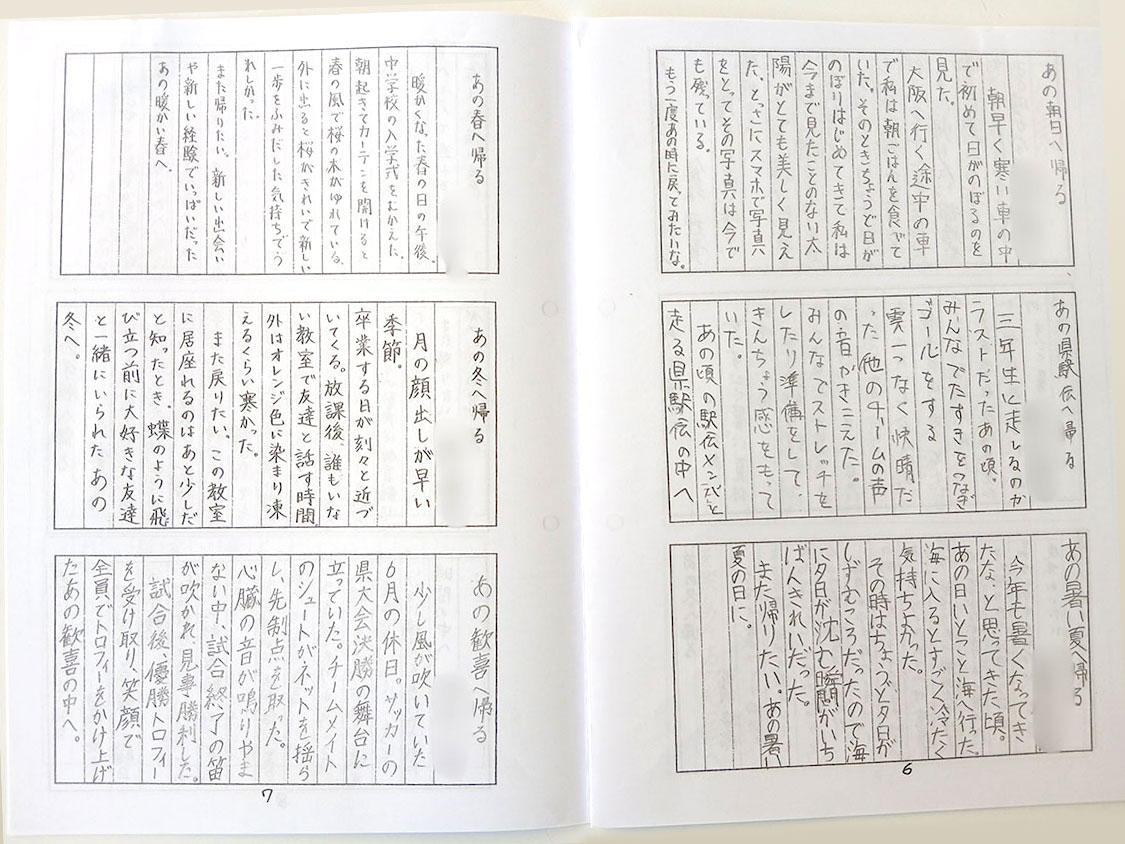 あの朝日へ帰る
朝早く寒い車の中
で初めて日がのぼるのを
見た。
大阪へ行く途中の車
で私は朝ごはんを食べて
いた。そのときちょうど日が
のぼりはじめてきて私は
今まで見たことのない太
陽がとても美しく見え
た。とっさにスマホで写真
をとってその写真は今で
も残ている。
もう一度あの時に戻ってみたいな。
あの県駅伝へ帰る
三年生と走しるのが
ラストだったあの頃。
みんなでたすきをつなぎ
ゴールをする
雲一つなく快晴だ
った他のチームの声
の音やきこえた。
みんなでストレッチを
したり準備をして、
きんちょう感をもって
いた。
あの頃の駅伝メンバーと
走る県駅伝の中へ
あの暑い夏へ帰る
今年も暑くなってき
たな、と思ってきた頃。
あの日いとこと海へ行った。
海に入るとすごく冷たく
気持ちよかった。
その時はちょうど夕日が
しずむころだったので海
に夕日が沈む瞬間がいち
ばんきれいだった。
また帰りたい。あの暑い
夏の日に。
6
あの春へ帰る
暖かくなった春の日の午後。
中学校の入学式をむかえた。
朝起きてカーテンを開けると
春の風で桜の木がゆれている。
外に出ると桜がきれいで新しい
一歩をふみだした気持ちでう
れしかった。
また帰りたい。新しい出会い
や新しい経験でいっぱいだった
あの暖かい春へ。
あの冬へ帰る
月の顔出しが早い
季節。
卒業する日が刻々と近づ
いてくる。放課後、誰もいな
い教室で友達と話す時間
外はオレンジ色に染まり凍
えるくらい寒かった。
また戻りたい。この教室
に居座れるのはあと少しだ
と知ったとき、蝶のように飛
び立つ前に大好きな友達
と一緒にいられた あの
冬へ。
あの歓喜へ帰る
少し風が吹いていた
6月の休日。サッカーの
県大会決勝の舞台に
立っていた。チームメイト
のシュートがネットを揺ら
し、先制点を取った。
心臓の音が鳴りやま
ない中、試合終了の笛
が吹かれ、見事勝利した。
試合後、優勝トロフィー
を受け取り、笑顔で
全員でトロフィーをかけ上げ
たあの歓喜の中へ。
7